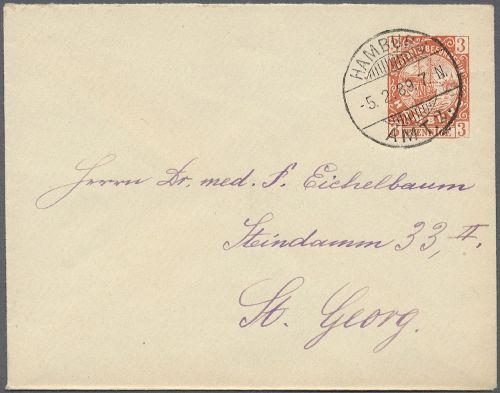 3 3
HAMBU
-5.2.89.7.N.
AMT
3
Herrn Dr. med. F. Eichelbaum
Steindamm 33, II.
St. Georg.